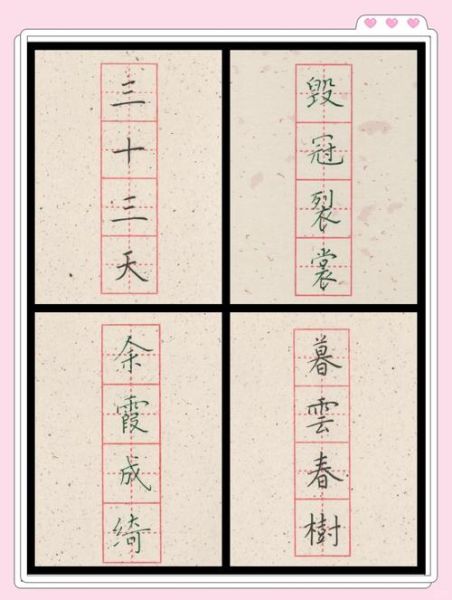 三十三天
毁冠裂裳
余霞成绮
暮雲春樹